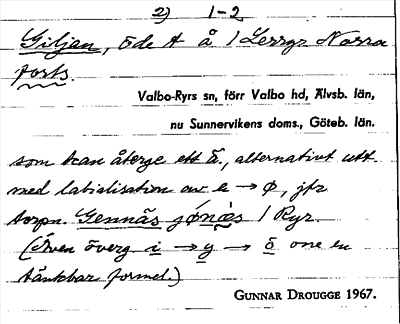 2) 1-2
Giljan, öde t å i Lerrgr. Norra
forts.
Valbo-Ryrs sn, förr Valbo hd, Älvsb. län,
nu Sunnervikens doms., Göteb. län.
som kan återge ett ä, alternativt ett
med labialisation av e → ø, jfr
torpn. Gennäs i Ryr
(Även överg i → y → ö one en
tänkbar formel.)
GUNNAR DROUGGE 1967.